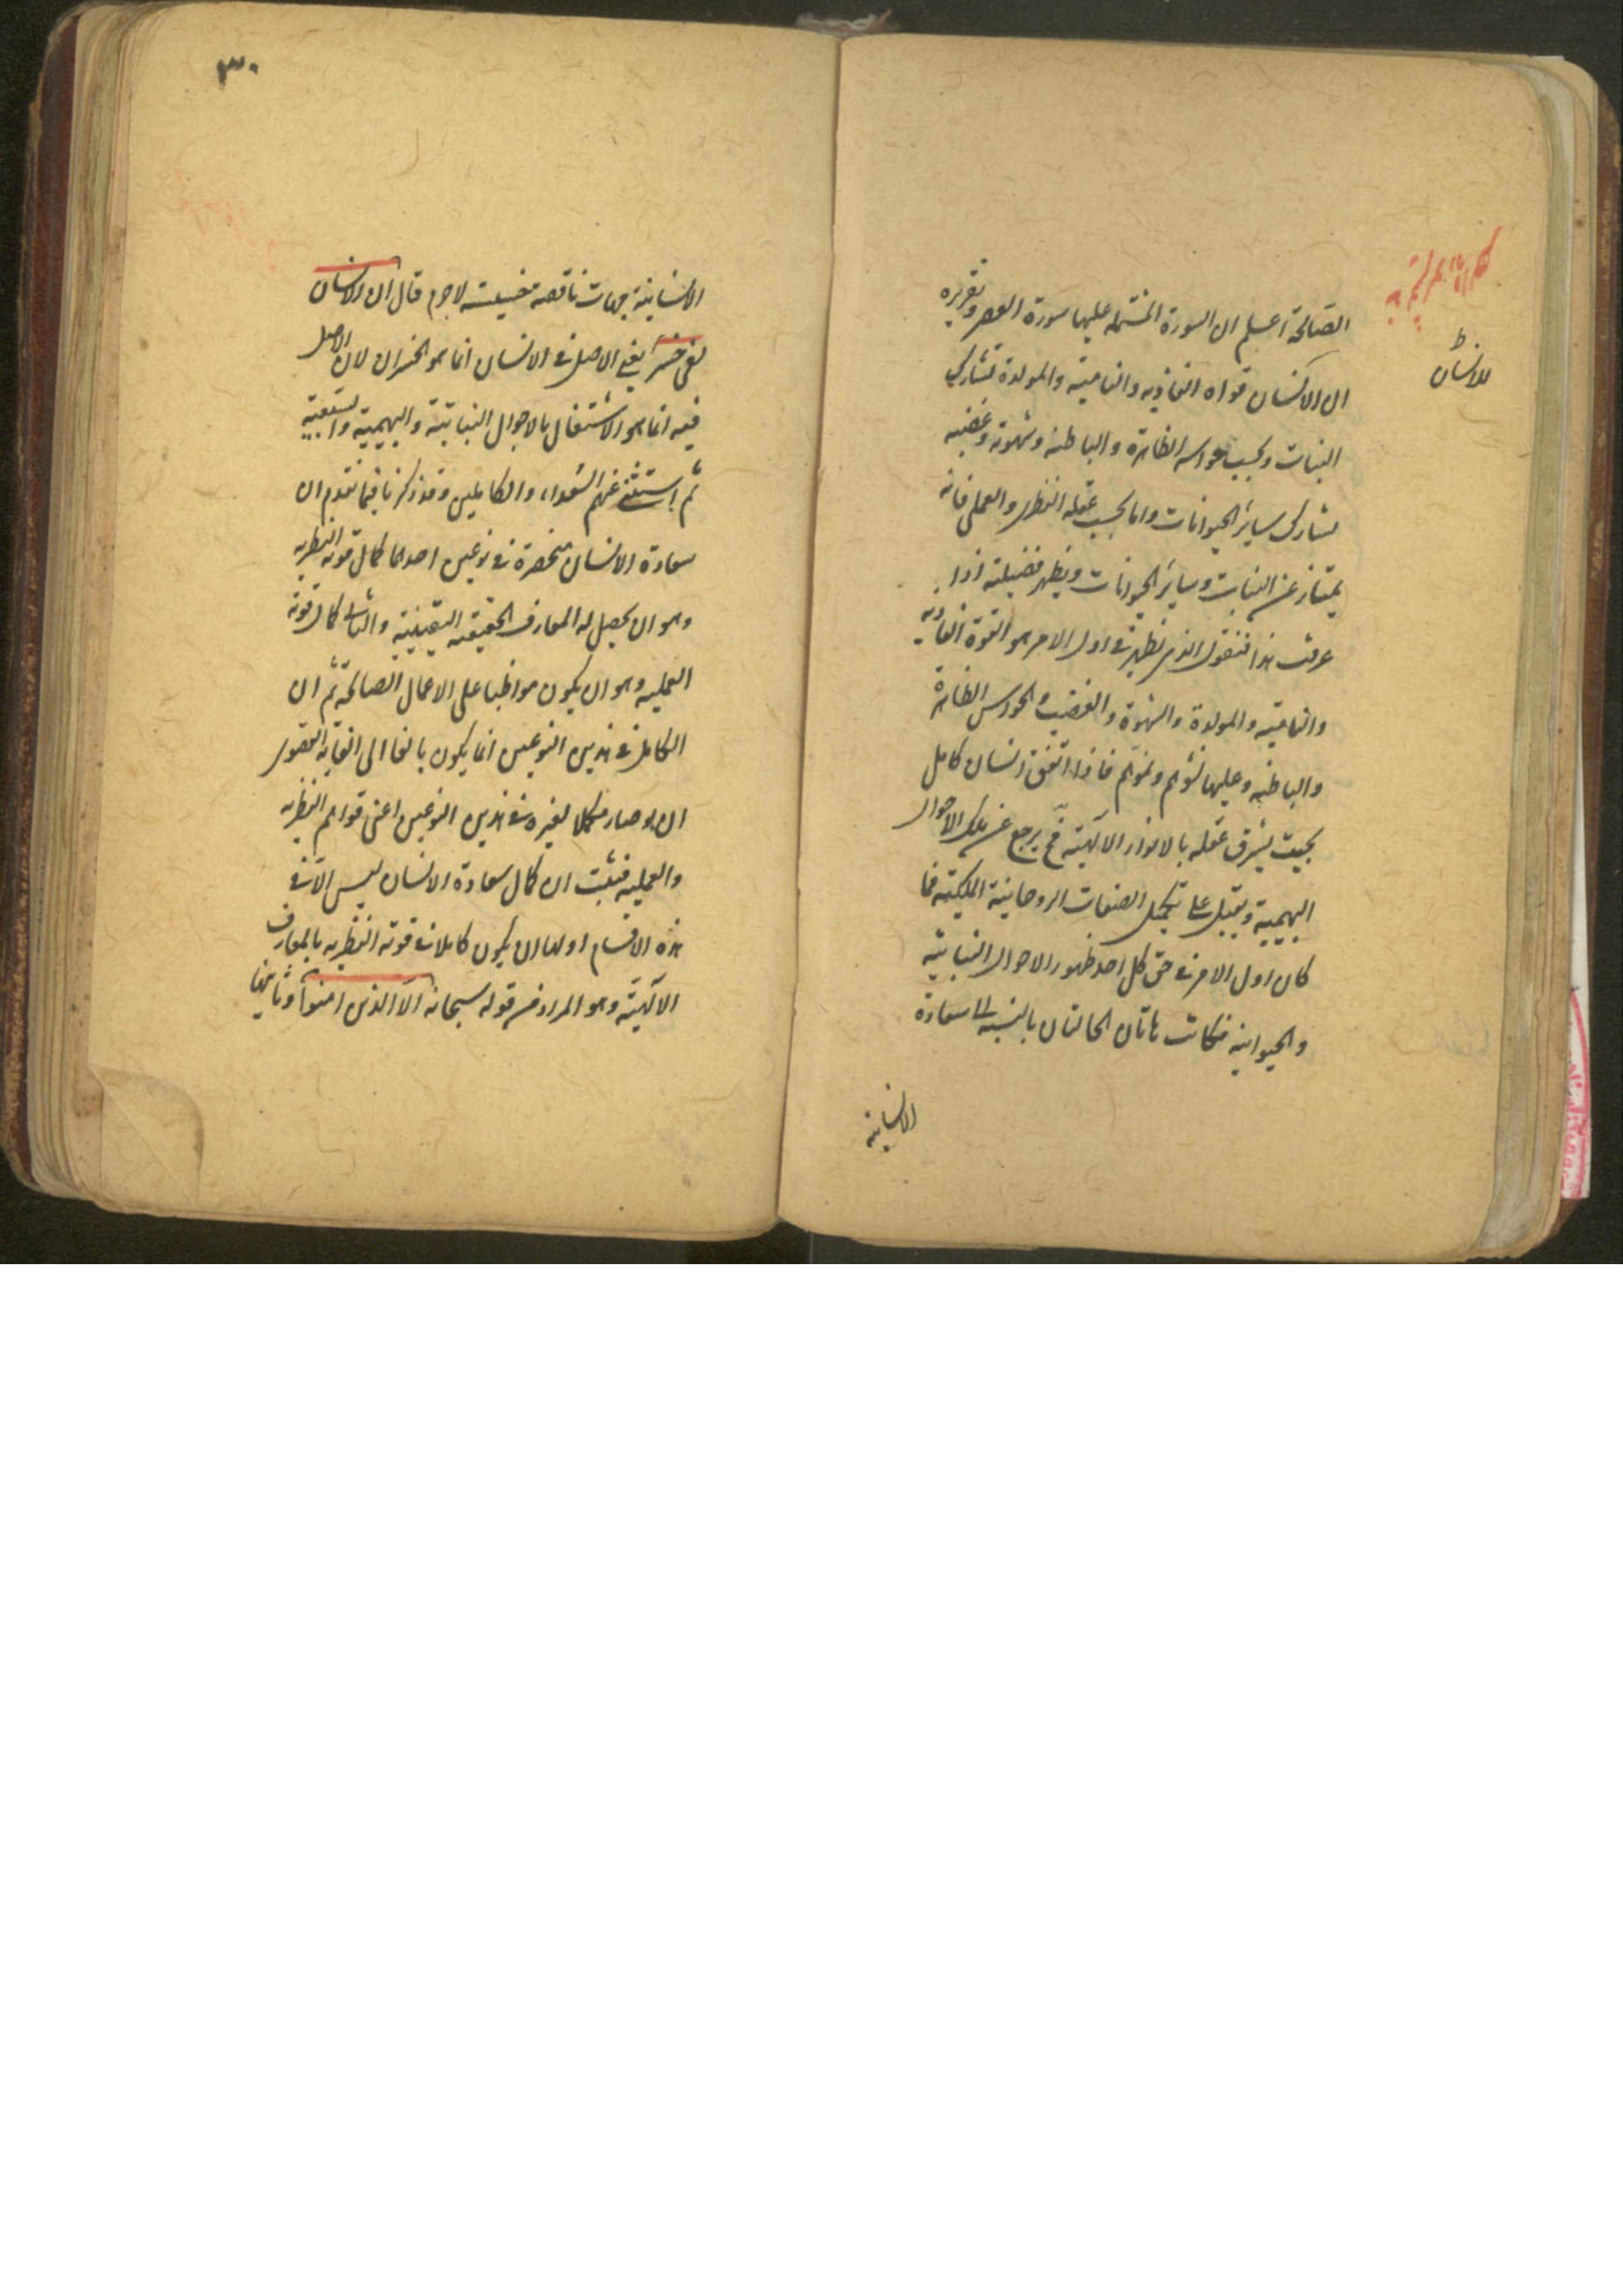 الصالحة اعلم ان السورة المشتملة عليها سورة العصر وتقريره
ان الانسان قواه الغاذيه والناميته والمولدة تشارك
النبات وبحسب حواسه الظاهرة والباطنه وشهوته وغضبه
يشارك ساير الحيوانات واما بحسب عقله النظر والعملى فانه
يمتاز عن النبات وساير الحيوانات ويظهر فضيلته اذا
عرفت هذا فنقول الذى يظهر فى اول الامر هو القوة الغاذيه
والناميته والمولدة والشهوة والغضب والحواس الظاهرة
والباطنه وعليها نشوهم ونموهم فاذا اتفق انسان كامل
بحيث يشرق عقله بالانوار الالهية فح يرجع عن تلك الاحوال
البهيمية ويقبل على تكميل الصفات الروحانية الملكيته فما
كان اول الامر فى حق كل احد ظهور الاحوال النباتيه
والحيوانيه فكانت هاتان الحالتان بالنسبه الى سعادة
الانسانيه
للانسان ط
٣٠
الانسانية جهات ناقصة خسيسة لاجرم قال ان الانسان
لفى خسر يعنى الاصل فى الانسان انما هو الخسران لان الاصل
فيه انما هو الاشتغال بالاحوال النباتية والبهيمية والسبعية
ثم استثنى عنهم السعداء والكاملين وقد ذكرنا فيما تقدم ان
سعادة الانسان منحصرة فى نوعين احدهما كمال قوته النظريه
وهو ان يحصل له المعارف الحقيقيه اليقينيه والثانى كمال قوته
العمليه وهو ان يكون مواظبا على الاعمال الصالحة ثم ان
الكامل فى هذين النوعين انما يكون بالغا الى الغاية القصور
ان لو صار مكملا لغيره فى هذين النوعين اعنى قواهم النظريه
والعمليه فثبت ان كمال سعادة الانسان ليس الا فى
هذه الاقسام اولها ان يكون كاملا فى قوته النظريه بالمعارف
الالهية وهو المراد من قوله سبحانه الا الذين امنوا وثانيها